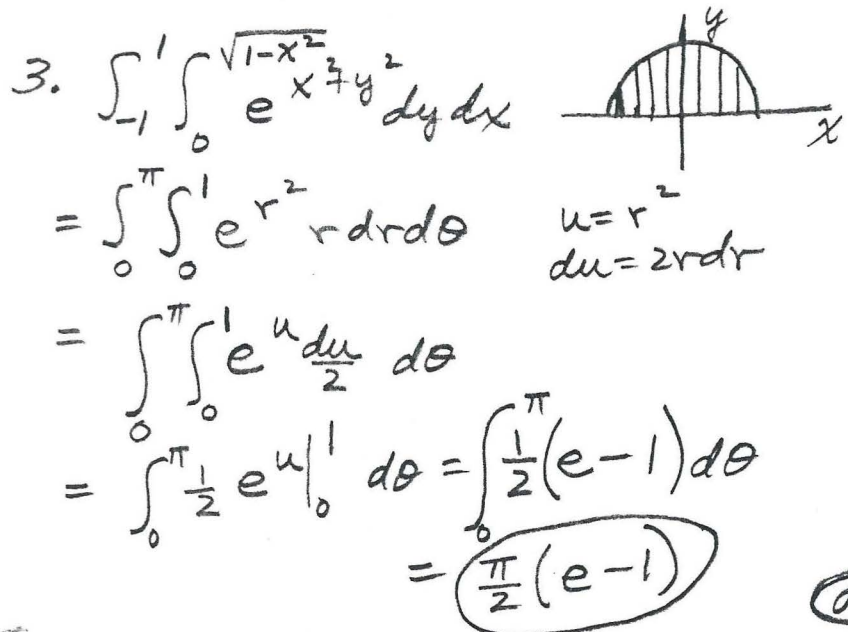 3. ∫_{-1}^{1} ∫_{0}^{√(1-x²)} e^{x²+y²} dy dx
y
x
= ∫_{0}^{π} ∫_{0}^{1} e^{r²} r dr dθ
u = r²
du = 2r dr
= ∫_{0}^{π} ∫_{0}^{1} e^{u} du/2 dθ
= ∫_{0}^{π} 1/2 e^{u} |_{0}^{1} dθ = ∫_{0}^{π} 1/2 (e-1) dθ
= π/2 (e-1)